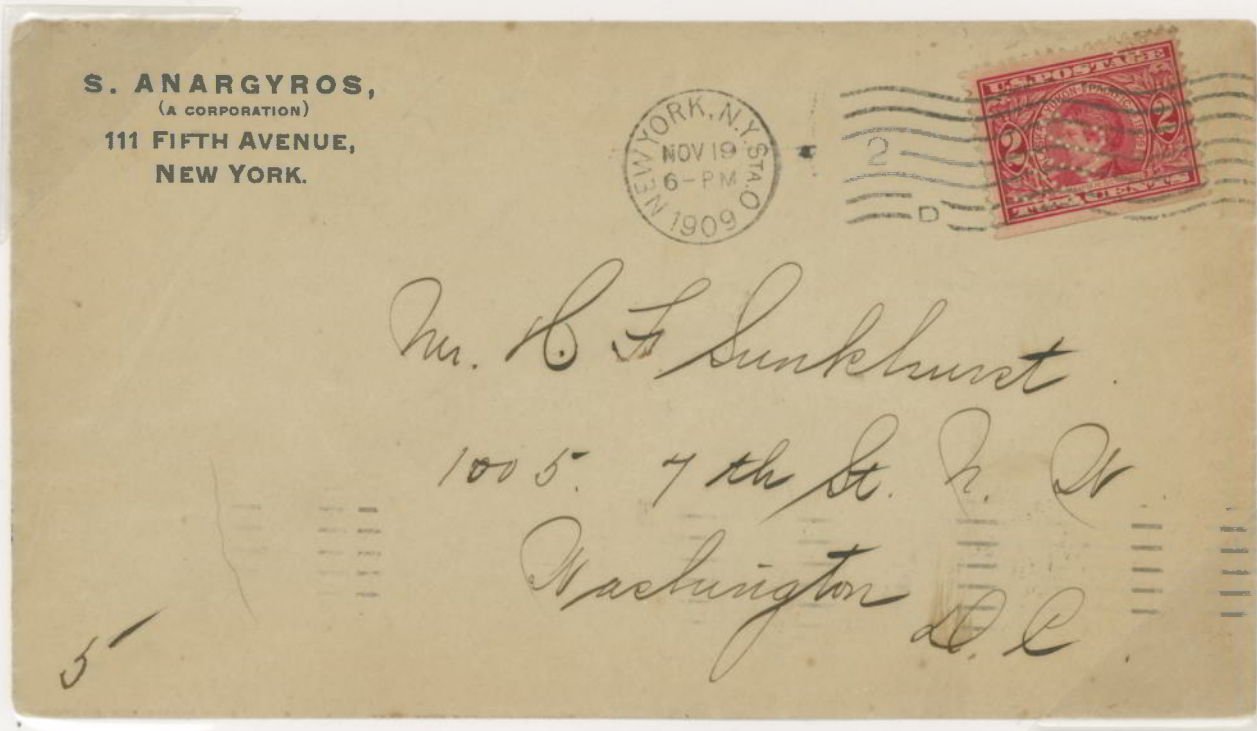 S. ANARGYROS,
(A CORPORATION)
111 FIFTH AVENUE,
NEW YORK.
NEW YORK, N.Y. STA. O
NOV 19
6-PM
1909
2
D
U.S. POSTAGE
2 2
TWO CENTS
Mr. C. F. Sunkhurst
1005. 7th St. N. W
Washington
D. C.
5